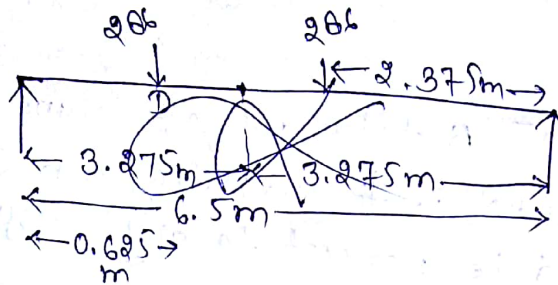 206 206
D 2.375m
3.275m 3.275m
6.5m
0.625
m